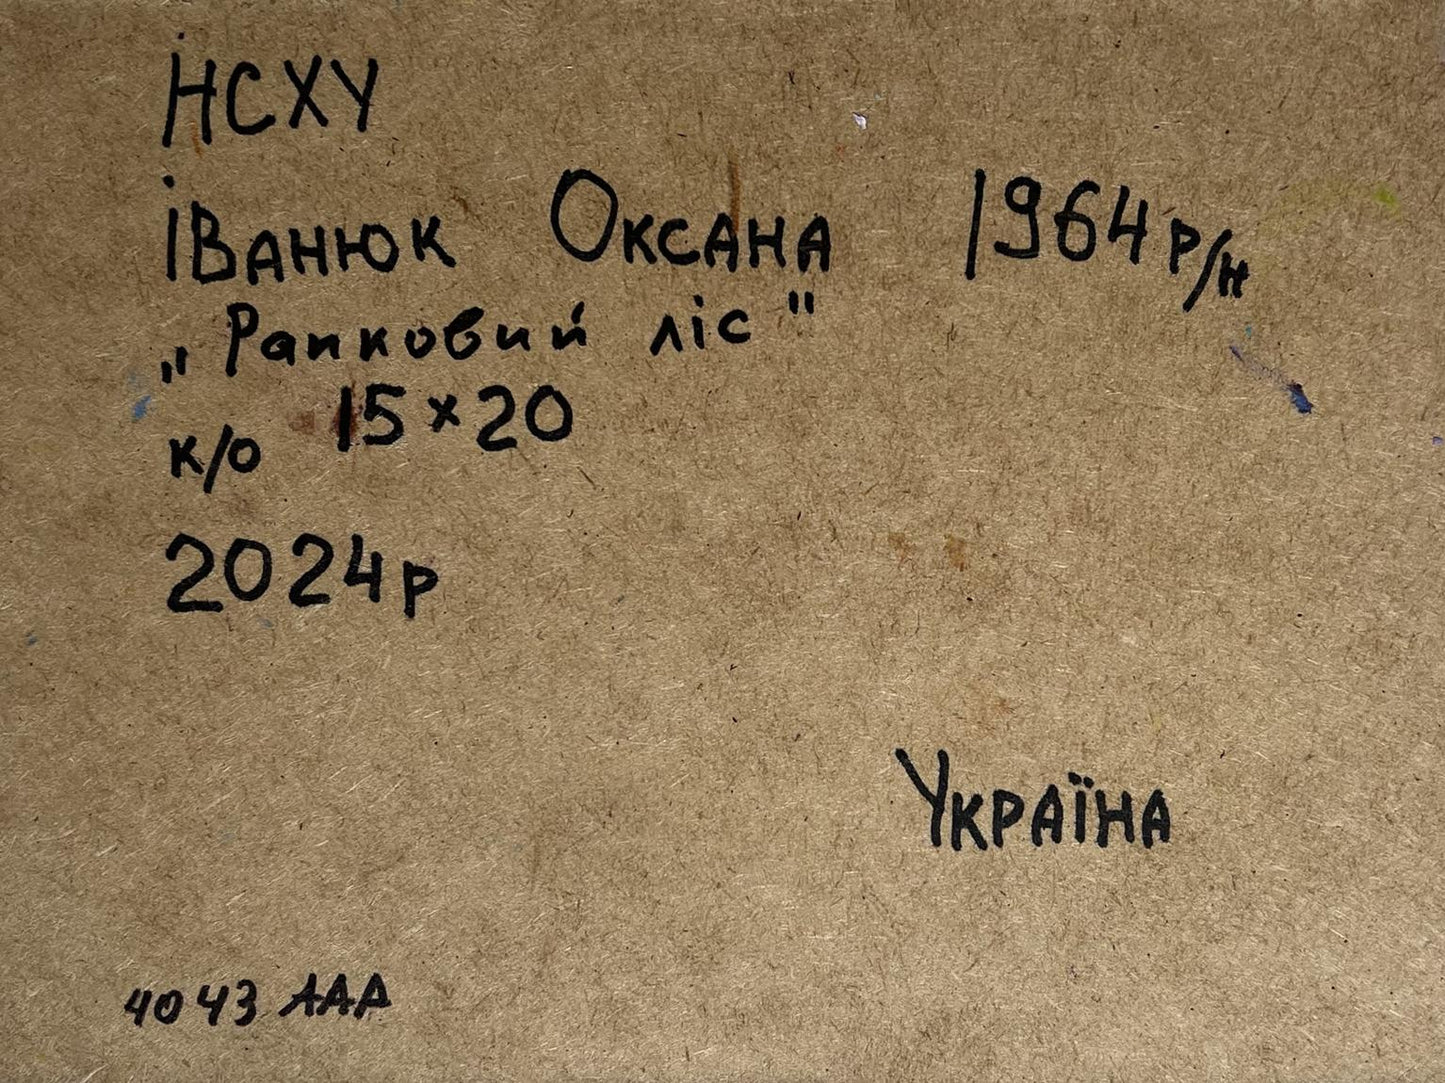 НСХУ
Іванюк Оксана 1964 р/н
„Ранковий ліс"
к/о 15×20
2024р
Україна
4043 ААА